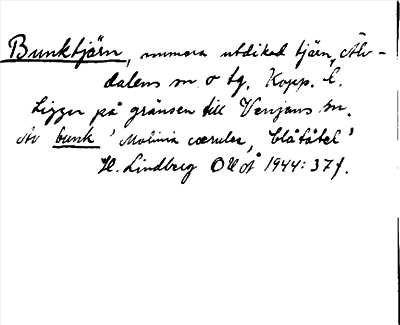 Bunktjärn, numera utdikad tjärn, Älv-
dalens sn o tg, Kopp. l.
Ligger på gränsen till Venjans sn.
Av bunk 'Molinia cærulea, blåtåtel'
H. Lindberg OUÅ 1944: 37 f.